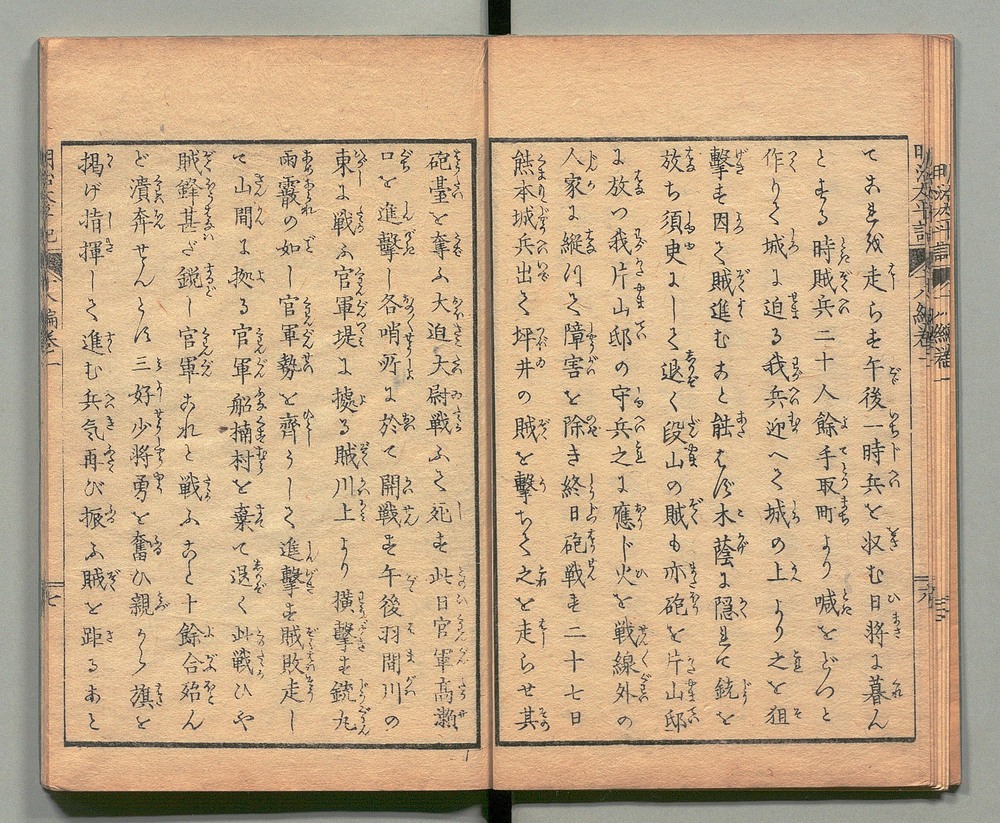 てこれを走らす午後一時兵を収む日将に暮ん
とする時賊兵二十人餘手取町より喊をどつと
作りて城に迫る我兵迎へて城の上より之を狙
撃す因て賊進むこと能はず木蔭に隠れて銃を
放ち須臾にして退く段山の賊も亦砲を片山邸
に放つ我片山邸の守兵之に應じ火を戦線外の
人家に縦ツて障害を除き終日砲戦す二十七日
熊本城兵出て坪井の賊を撃ちて之を走らせ其
砲臺を奪ふ大迫大尉戦ふて死す此日官軍高瀬
口を進撃し各哨所に於て開戦す午後羽間川の
東に戦ふ官軍堤に據る賊川上より横撃す銃丸
雨霰の如し官軍勢を齊うして進撃す賊敗走し
て山間に拠る官軍船揃村を棄て退く此戦ひや
賊鋒甚だ鋭し官軍これと戦ふこと十餘合殆ん
ど潰奔せんとす三好少将勇を奮ひ親から旗を
掲げ指揮して進む兵気再び振ふ賊を距ること
明治太平記
八編巻一
七